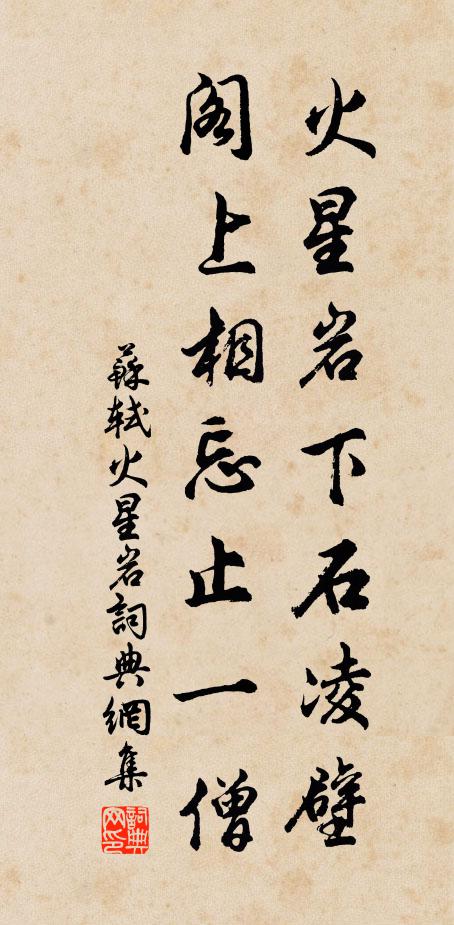 火星岩下石凌壁
阁上相忘止一僧
蘇轼火星岩詞典網集
詞典网印